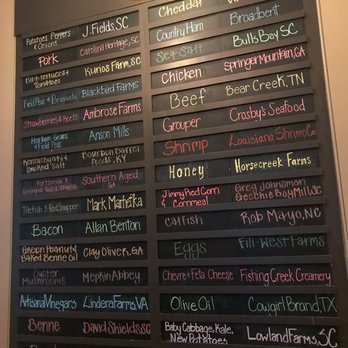 Potatoes, Peppers & Onions J. Fields, SC
Pork Carolina Heritage, SC
Bibb lettuce & Tomatoes Kurios Farms, SC
Field Peas & Brussels Blackbird Farms
Strawberries & Beets Ambrose Farms
Heirloom Grains & Field Peas Anson Mills
Smoked Salt Bourbon Barrel Foods, KY
Gorgonzola Cheese Southern Aged
Tilefish & Red Snapper Mark Marhefka
Bacon Allan Benton
Green Peanuts & Baked Benne Oil Clay Oliver, GA
Oyster Mushrooms Mepkin Abbey
Artisana Vinegars Lindera Farms, VA
Benne David Shields, SC
Cheddar
Country Ham Broadbent
Sea Salt Bulls Bay SC
Chicken Springer Mountain, GA
Beef Bear Creek, TN
Grouper Crosby's Seafood
Shrimp Louisiana Shrimp Co
Honey Horsecreek Farms
Jimmy Red Corn & Cornmeal Greg Johnsman Geechie Boy Mill SC
Catfish Rob Mayo, NC
Eggs Fili-West Farms
Chevre & Feta Cheese Fishing Creek Creamery
Olive Oil Cowgirl Brand, TX
Baby Cabbage, Kale, New Potatoes Lowland Farms, SC